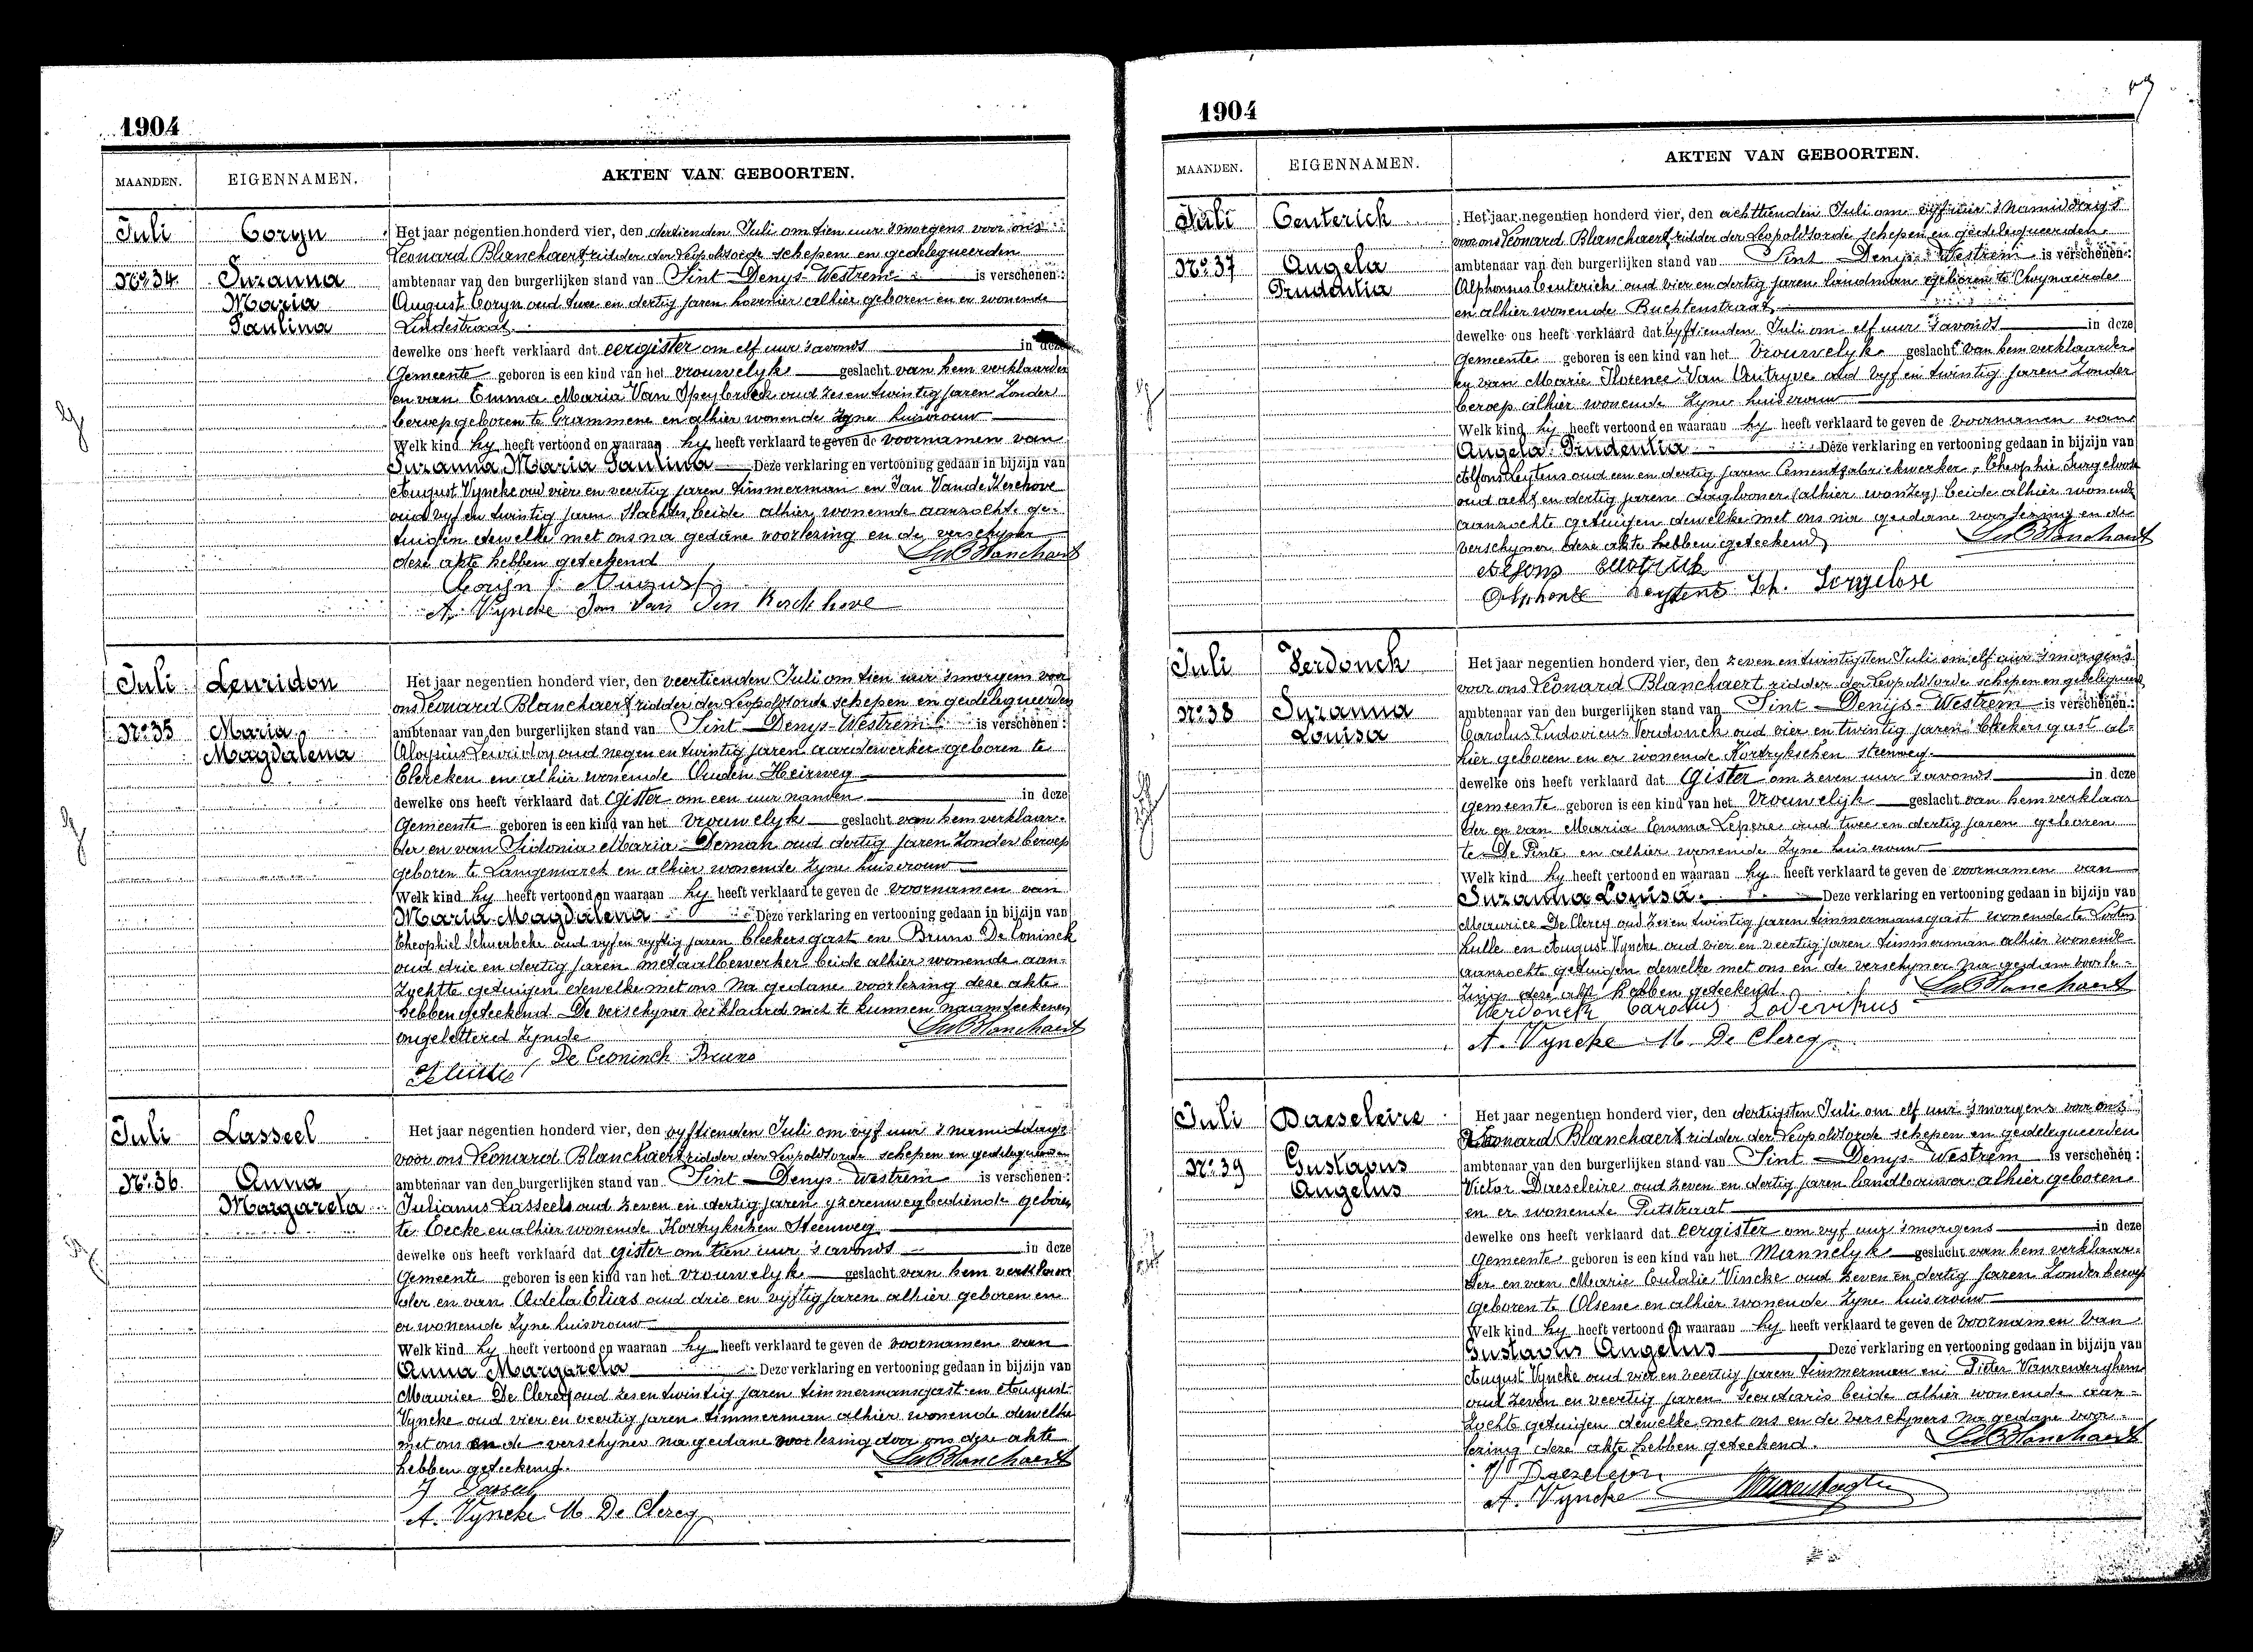 1904
MAANDEN. EIGENNAMEN. AKTEN VAN GEBOORTEN.
Juli Coryn Het jaar negentien honderd vier, den dertienden Juli om tien uur 's morgens voor ons
Leonard Blanchaert ridder der Leopoldsorde schepen en gedelegueerden
No 34 Suzanna ambtenaar van den burgerlijken stand van Sint Denys-Westrem is verschenen:
Maria August Coryn oud twee en dertig jaren hovenier alhier geboren en er wonende
Paulina Lindestraat
dewelke ons heeft verklaard dat eergister om elf uur 's avonds in deze
Gemeente geboren is een kind van het vrouwelyk geslacht van hem verklaarder
en van Emma Maria Van Speybroeck oud zes en twintig jaren Zonder
beroep geboren te Grammene en alhier wonende zyne huisvrouw
Welk kind hy heeft vertoond en waaraan hy heeft verklaard te geven de voornamen van
Suzanna Maria Paulina Deze verklaring en vertooning gedaan in bijzijn van
August Vyncke oud vier en veertig jaren timmerman en Jan Van de Kerchove
oud vyf en twintig jaren Slachter beide alhier wonende aanzochte ge-
tuigen dewelke met ons na gedane voorlezing en de verschyner
deze akte hebben geteekend LBlanchaert
Coryn August
A. Vyncke Jan Van Den Kerckhove
Juli Leuridon Het jaar negentien honderd vier, den veertienden Juli om tien uur 's morgens voor
ons Leonard Blanchaert ridder der Leopoldsorde schepen en gedelegueerden
No 35 Maria ambtenaar van den burgerlijken stand van Sint Denys-Westrem is verschenen:
Magdalena Aloysius Leuridon oud negen en twintig jaren aardewerker geboren te
Clercken en alhier wonende Ouden Heirweg
dewelke ons heeft verklaard dat Gister om een uur in deze
Gemeente geboren is een kind van het vrouwelyk geslacht van hem verklaar-
der en van Sidonia Maria Deman oud dertig jaren Zonder beroep
geboren te Langemarck en alhier wonende zyne huisvrouw
Welk kind hy heeft vertoond en waaraan hy heeft verklaard te geven de voornamen van
Maria Magdalena Deze verklaring en vertooning gedaan in bijzijn van
Theophiel oud vyf en vyftig jaren bleekersgast en Bruno De Coninck
oud drie en dertig jaren metaalbewerker beide alhier wonende aan-
zochte getuigen dewelke met ons na gedane voorlezing deze akte
hebben geteekend De verschyner verklaard niet te kunnen naamteekenen
ongeletterd zynde LBlanchaert
De Coninck Bruno
Juli Lasseel Het jaar negentien honderd vier, den vyftienden Juli om vyf uur 's namiddags
voor ons Leonard Blanchaert ridder der Leopoldsorde schepen en gedelegueerden
No 36 Anna ambtenaar van den burgerlijken stand van Sint Denys Westrem is verschenen:
Margareta Julianus Lasseel oud zeven en dertig jaren yzerenwegbediende geboren
te Eecke en alhier wonende Kortrykschen Steenweg
dewelke ons heeft verklaard dat gister om tien uur 's avonds in deze
Gemeente geboren is een kind van het vrouwelyk geslacht van hem verklaar
der en van Adela Elias oud drie en vyftig jaren alhier geboren en
er wonende zyne huisvrouw
Welk kind hy heeft vertoond en waaraan hy heeft verklaard te geven de voornamen van
Anna Margareta Deze verklaring en vertooning gedaan in bijzijn van
Maurice De Clercq oud zes en twintig jaren timmermansgast en August
Vyncke oud vier en veertig jaren timmerman alhier wonende dewelke
met ons en de verschyner na gedane voorlezing door ons deze akte
hebben geteekend. LBlanchaert
J Lasseel
A. Vyncke M. De Clercq
1904
MAANDEN. EIGENNAMEN. AKTEN VAN GEBOORTEN.
Juli Centerick Het jaar negentien honderd vier, den achttienden Juli om vyf uur 's namiddags
voor ons Leonard Blanchaert ridder der Leopoldsorde schepen en gedelegueerden
No 37 Angela ambtenaar van den burgerlijken stand van Sint Denys-Westrem is verschenen:
Prudentia Alphonsus Centerick oud vier en dertig jaren landman geboren te Zwynaerde
en alhier wonende Buchtenstraat
dewelke ons heeft verklaard dat vyftienden Juli om elf uur 's avonds in deze
Gemeente geboren is een kind van het Vrouwelyk geslacht van hem verklaarder
en van Marie Florence Van Autryve oud vyf en twintig jaren Zonder
beroep alhier wonende zyne huisvrouw
Welk kind hy heeft vertoond en waaraan hy heeft verklaard te geven de voornamen van
Angela Prudentia Deze verklaring en vertooning gedaan in bijzijn van
Alfons Leytens oud een en dertig jaren Cementfabriekwerker, Theophie Surgeloose
oud acht en dertig jaren dagloner beide alhier wonende
aanzochte getuigen dewelke met ons na gedane voorlezing en de
verschyner deze akte hebben geteekend LBlanchaert
Alfons
Alphonse Leystens Th. Sorgelose
Juli Verdonck Het jaar negentien honderd vier, den zeven en twintigsten Juli om elf uur 's morgens
voor ons Leonard Blanchaert ridder der Leopoldsorde schepen en gedelegueerd
No 38 Suzanna ambtenaar van den burgerlijken stand van Sint Denijs-Westrem is verschenen:
Louisa Carolus Ludovicus Verdonck oud vier en twintig jaren bleekersgast al-
hier geboren en er wonende Kortrykschen steenweg
dewelke ons heeft verklaard dat Gister om zeven uur 's avonds in deze
gemeente geboren is een kind van het Vrouwelijk geslacht van hem verklaar
der en van Maria Emma Lepere oud twee en dertig jaren geboren
te De Pinte en alhier wonende zyne huisvrouw
Welk kind hy heeft vertoond en waaraan hy heeft verklaard te geven de voornamen van
Suzanna Louisa. Deze verklaring en vertooning gedaan in bijzijn van
Maurice De Clercq oud zes en twintig jaren timmermansgast wonende te Looten
hulle en August Vyncke oud vier en veertig jaren timmerman alhier wonende
aanzochte getuigen dewelke met ons en de verschyner na gedane voorle-
zing deze akte hebben geteekend LBlanchaert
Verdonck Carolus Lodevikus
A. Vyncke M. De Clercq
Juli Daeseleire Het jaar negentien honderd vier, den dertigsten Juli om elf uur 's morgens voor ons
Leonard Blanchaert ridder der Leopoldsorde schepen en gedelegueerden
No 39 Gustavus ambtenaar van den burgerlijken stand van Sint Denys-Westrem is verschenen:
Angelus Victor Daeseleire oud zeven en dertig jaren landbouwer alhier geboren
en er wonende Putstraat
dewelke ons heeft verklaard dat eergister om vyf uur 's morgens in deze
Gemeente geboren is een kind van het Mannelyk geslacht van hem verklaar-
der en van Marie Eulalie Vincke oud zeven en dertig jaren Zonder beroep
geboren te Olsene en alhier wonende zyne huisvrouw
Welk kind hy heeft vertoond en waaraan hy heeft verklaard te geven de voornamen van
Gustavus Angelus Deze verklaring en vertooning gedaan in bijzijn van
August Vyncke oud vier en veertig jaren timmerman en Pieter Vanrenterghem
oud zeven en veertig jaren secretaris beide alhier wonende aan-
zochte getuigen dewelke met ons en de verschyners na gedane voor-
lezing deze akte hebben geteekend. LBlanchaert
V Daezeleire
A. Vyncke